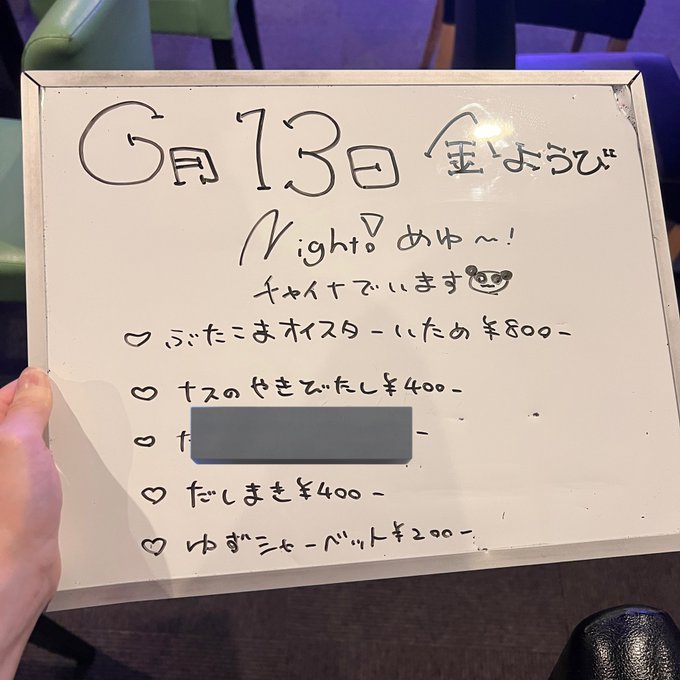 6月13日 金ようび
Night! めゆ〜!
チャイナでいます
♡ ぶたこまオイスターいため ¥800-
♡ ナスのやきびたし ¥400-
♡
♡ だしまき ¥400-
♡ ゆずシャーベット ¥200-